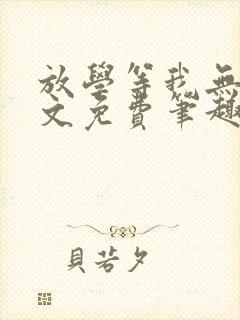 放學等我無
文免費筆趣
貝若夕